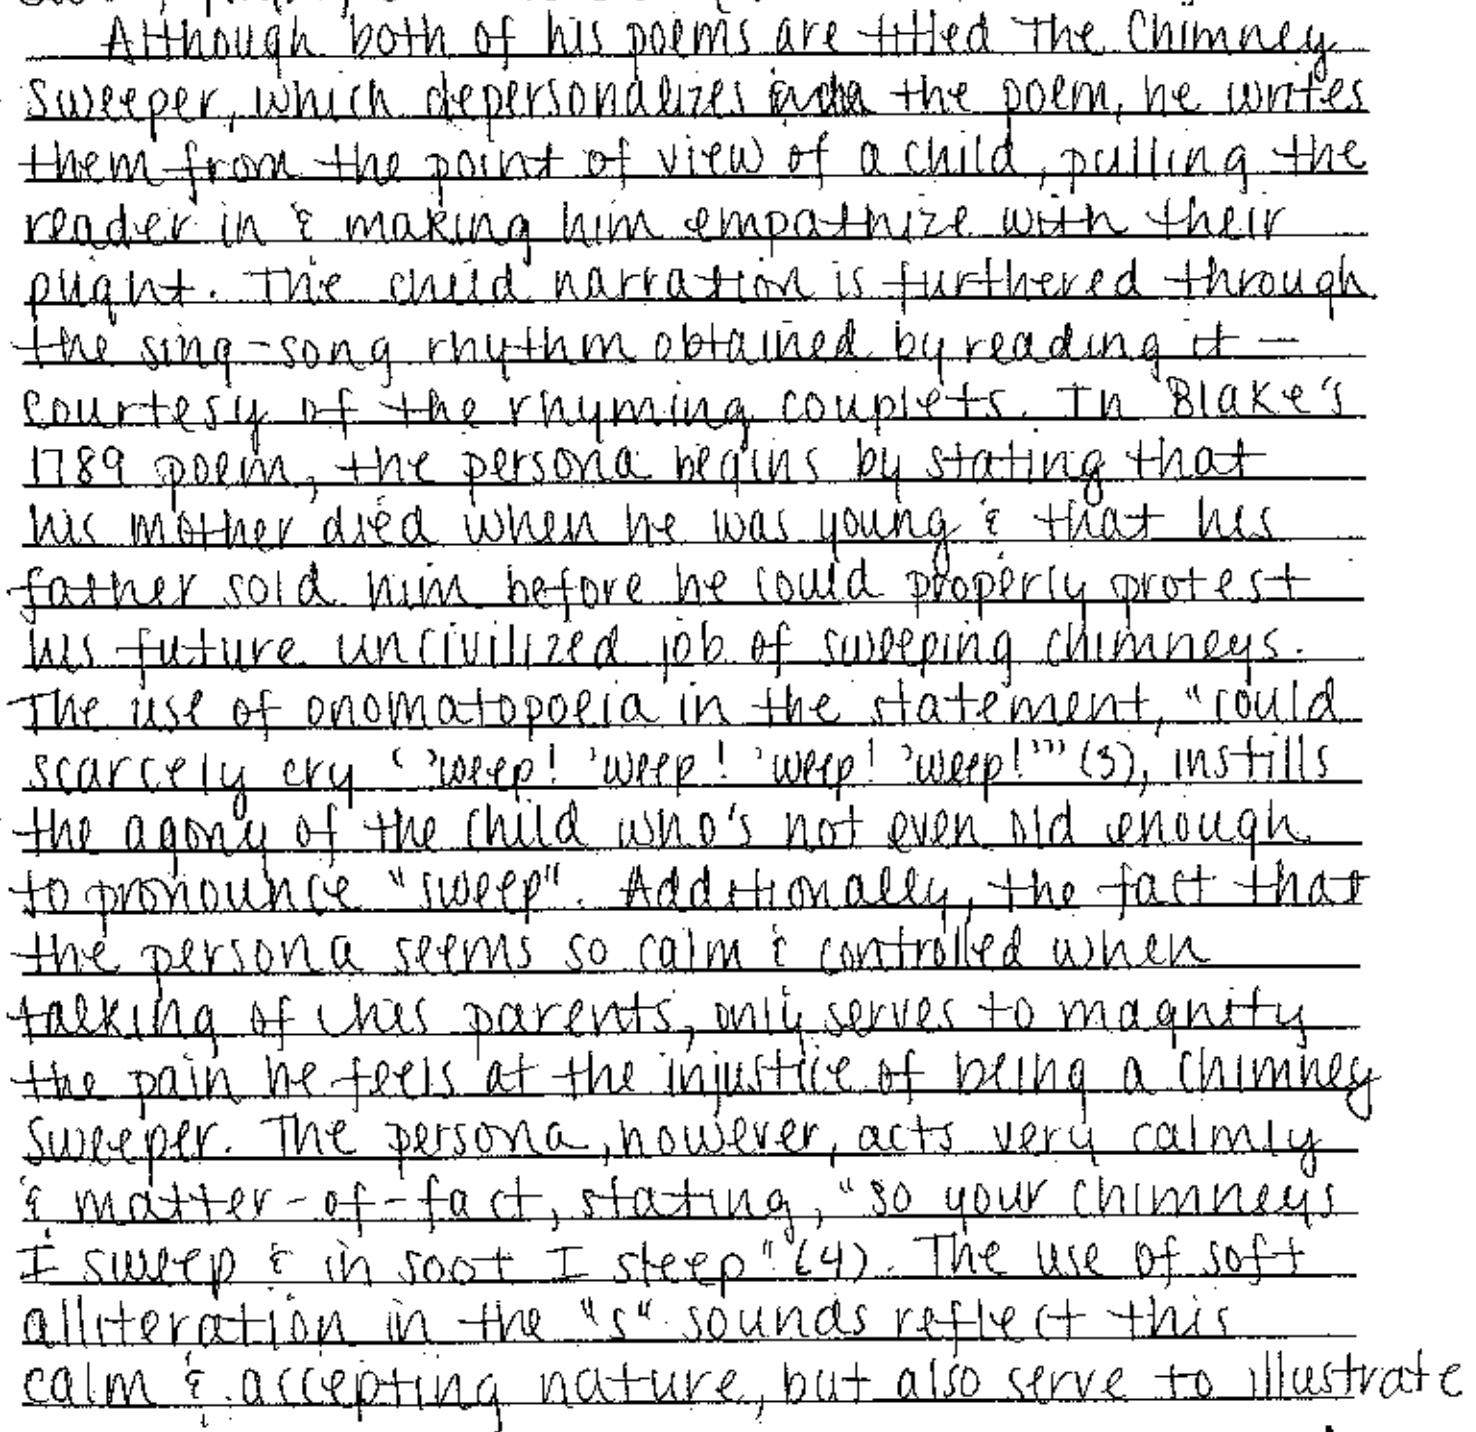 Although both of his poems are titled The Chimney
Sweeper, which depersonalizes the poem, he writes
them from the point of view of a child, pulling the
reader in & making him empathize with their
plight. The child narration is furthered through
the sing-song rhythm obtained by reading it -
courtesy of the rhyming couplets. In Blake's
1789 poem, the persona begins by stating that
his mother died when he was young & that his
father sold him before he could properly protest
his future uncivilized job of sweeping chimneys.
The use of onomatopoeia in the statement, "could
scarcely cry ('weep! 'weep! 'weep! 'weep!''" (3), instills
the agony of the child who's not even old enough
to pronounce "sweep". Additionally, the fact that
the persona seems so calm & controlled when
talking of his parents, only serves to magnify
the pain he feels at the injustice of being a chimney
sweeper. The persona, however, acts very calmly
& matter-of-fact, stating, "so your chimneys
I sweep & in soot I sleep" (4). The use of soft
alliteration in the "s" sounds reflect this
calm & accepting nature, but also serve to illustrate